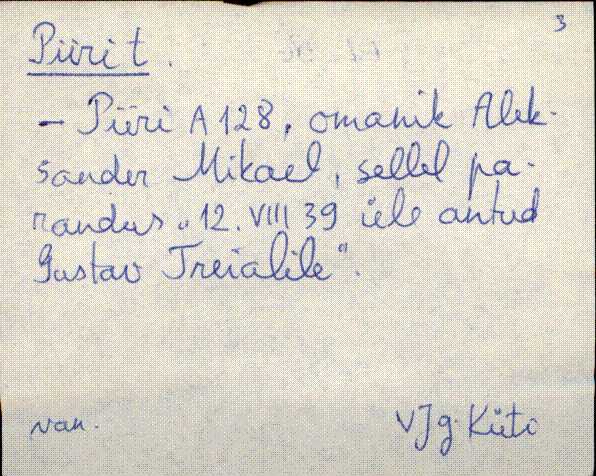 3
Püri t.
– Püri A 128, omanik Alek-
sander Mikael, sellel pa-
randus „12. VIII 39 üle antud
Gustav Treialile“.
van. VJg. Küti